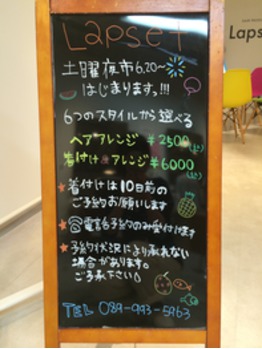 Lapset
土曜夜市6.20〜
はじまります。!!!
6つのスタイルから選べる
ヘアアレンジ ¥2500
着付け&アレンジ ¥6000
★着付けは10日前の
ご予約お願いします
★☎電話予約のみ受付けます
★予約状況により承れない
場合があります。
ご了承下さい
TEL 089-993-5963
Laps